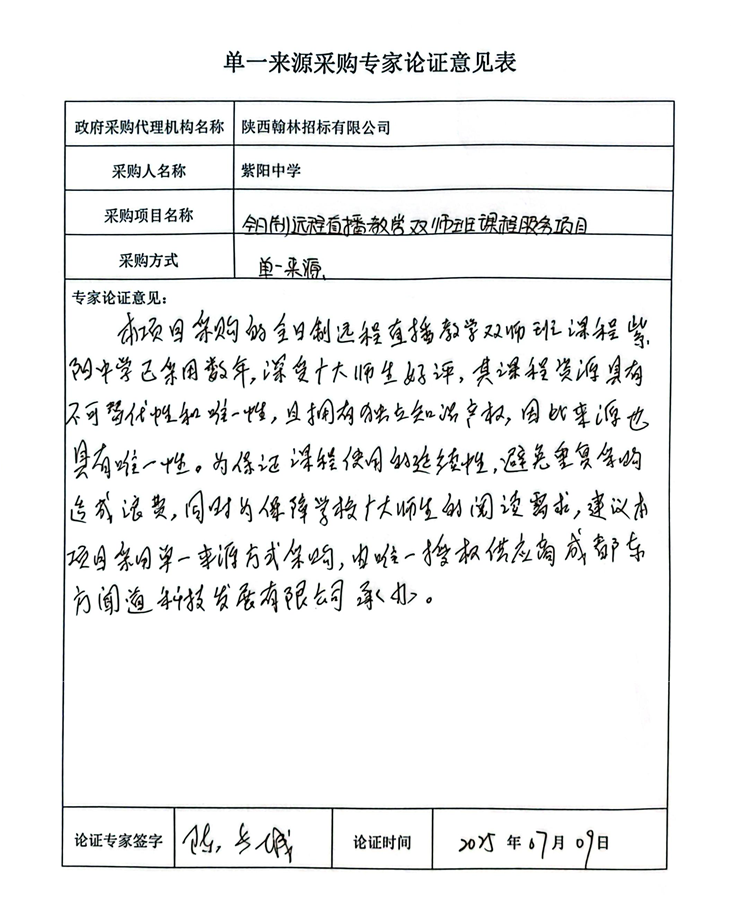 单一来源采购专家论证意见表
政府采购代理机构名称 陕西翰林招标有限公司
采购人名称 紫阳中学
采购项目名称 全日制远程直播教学双师班课程服务项目
采购方式 单一来源
专家论证意见：
本项目采购的全日制远程直播教学双师班课程紫
阳中学已采用数年，深受广大师生好评，其课程资源具有
不可替代性和唯一性，且拥有独立知识产权，因此来源也
具有唯一性。为保证课程使用的延续性，避免重复采购
造成浪费，同时为保障学校广大师生的阅读需求，建议本
项目采用单一来源方式采购，由唯一授权供应商成都东
方闻道科技发展有限公司承办。
论证专家签字 陈 论证时间 2025年07月09日